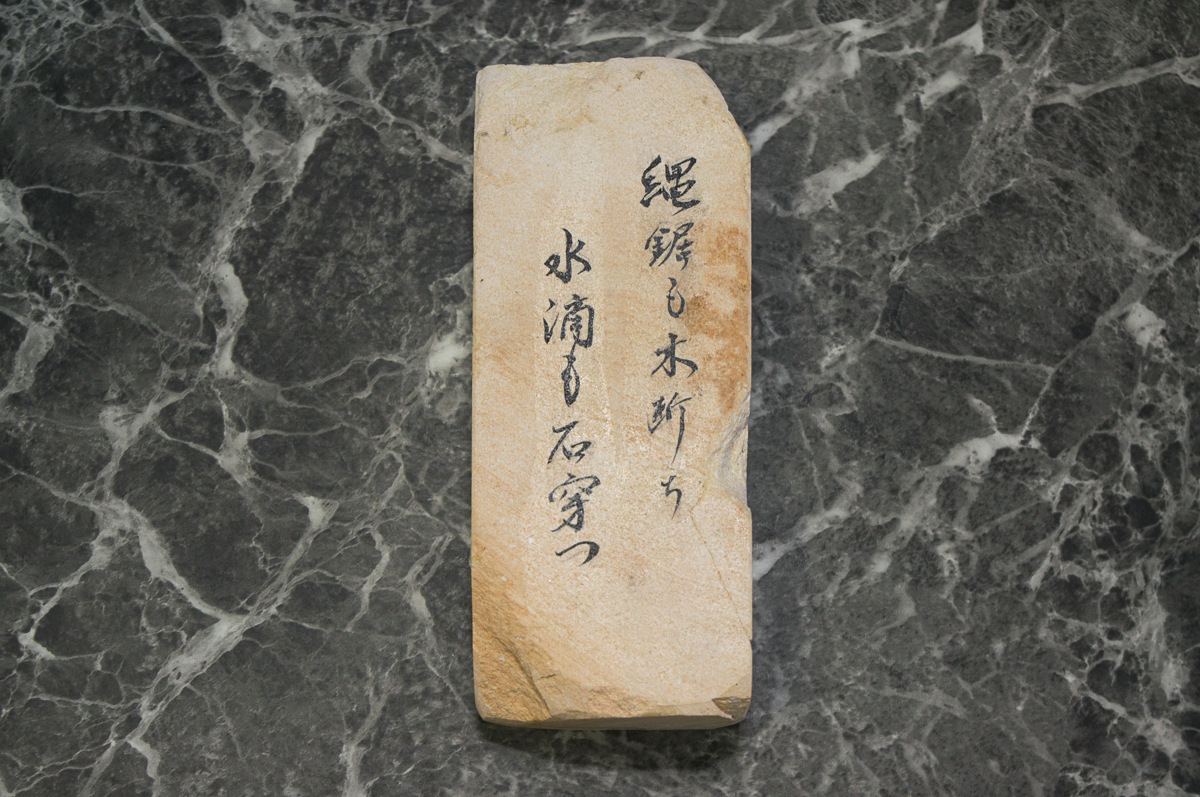 縄鋸も木断ち
水滴も石穿つ